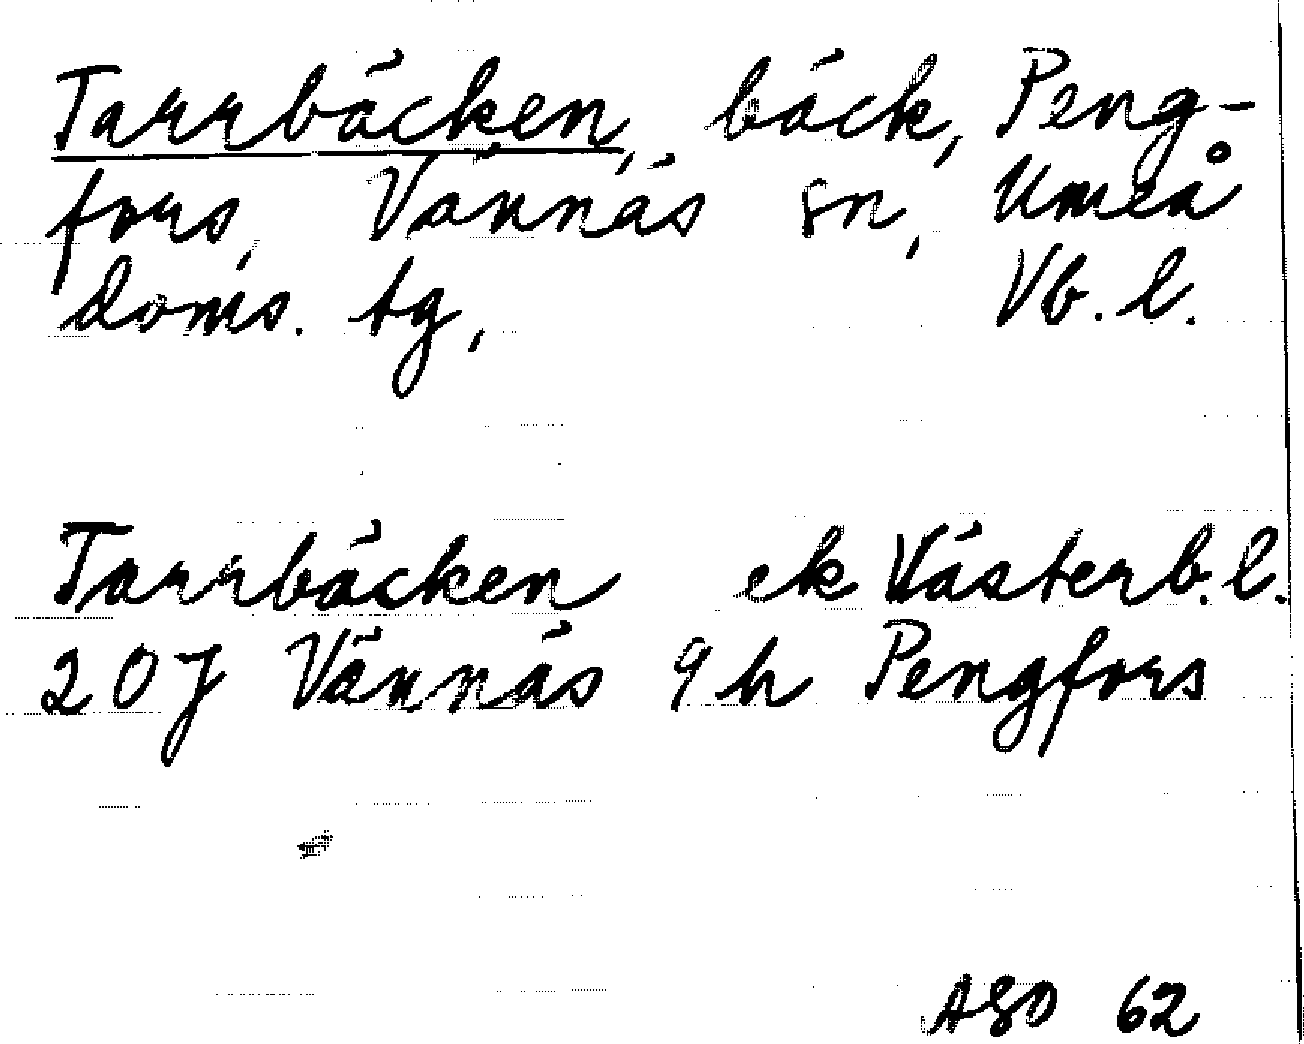 Tarrbäcken, bäck, Peng-
fors, Vännäs sn, Umeå
doms. tg, Vb. l.
Tarrbäcken ek Västerb. l.
20J Vännäs 9h Pengfors
ASO 62